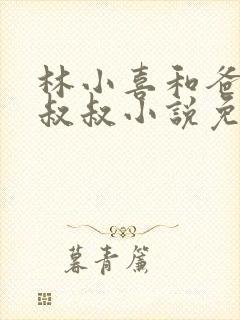 林小喜和爸
叔叔小說免
暮青簾